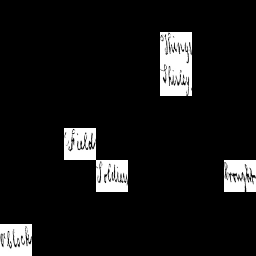 Things
Shirley
Field
Soldiers
brought
o'clock